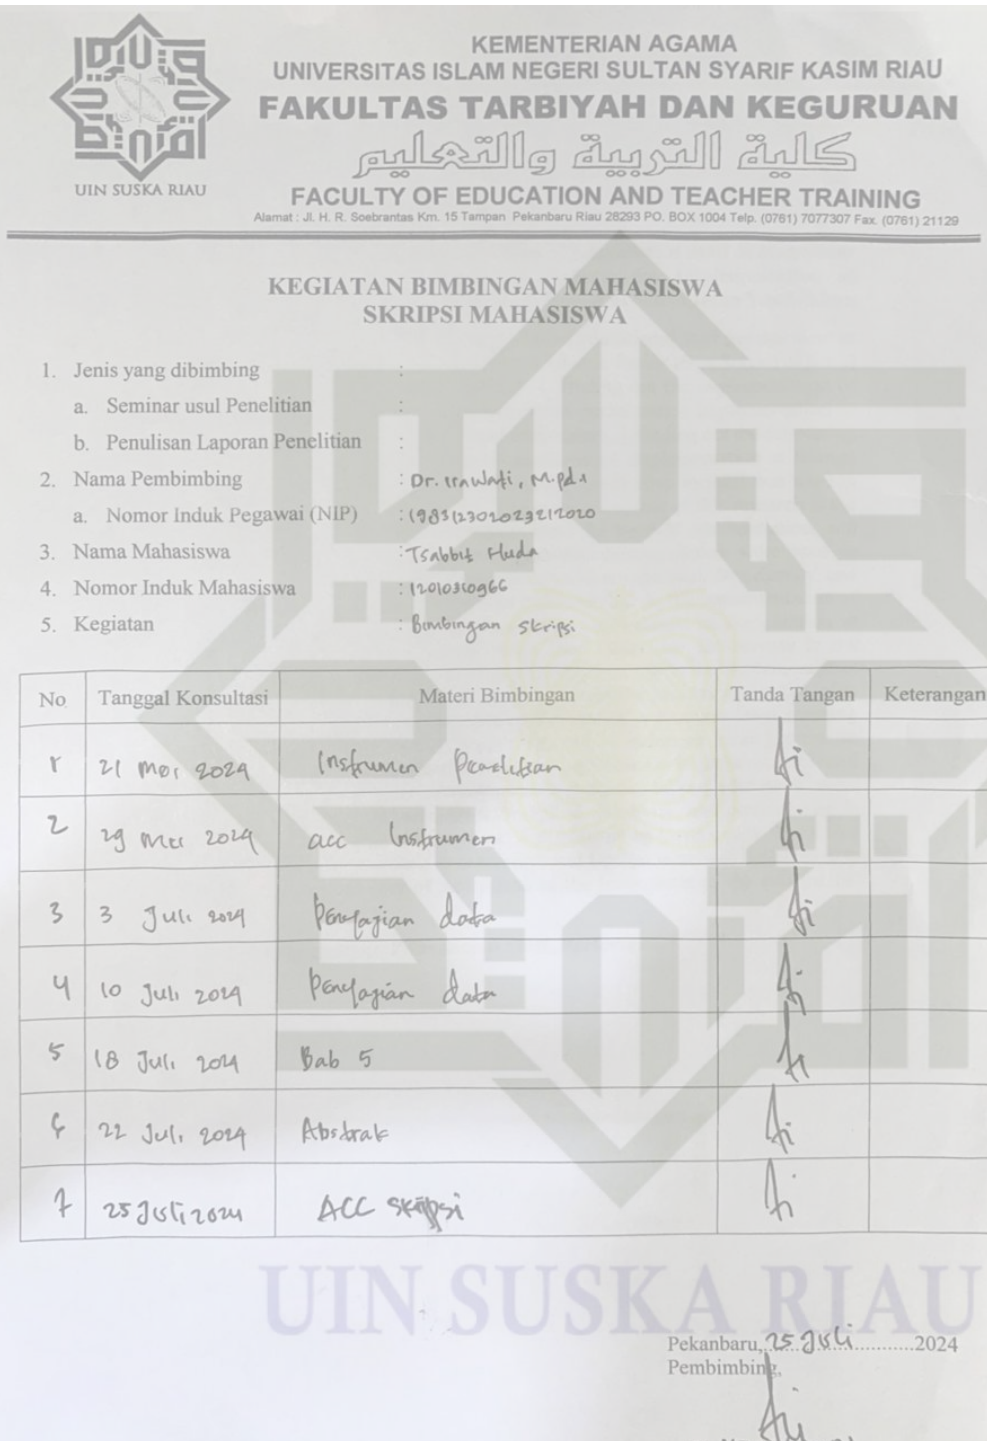 UIN SUSKA RIAU
KEMENTERIAN AGAMA
UNIVERSITAS ISLAM NEGERI SULTAN SYARIF KASIM RIAU
FAKULTAS TARBIYAH DAN KEGURUAN
كلية التربية والتعليم
FACULTY OF EDUCATION AND TEACHER TRAINING
Alamat : Jl. H. R. Soebrantas Km. 15 Tampan Pekanbaru Riau 28293 PO. BOX 1004 Telp. (0761) 7077307 Fax. (0761) 21129
KEGIATAN BIMBINGAN MAHASISWA
SKRIPSI MAHASISWA
1. Jenis yang dibimbing :
a. Seminar usul Penelitian :
b. Penulisan Laporan Penelitian :
2. Nama Pembimbing : Dr. Irawati, M.Pd.
a. Nomor Induk Pegawai (NIP) :
3. Nama Mahasiswa : Tsabbit Huda
4. Nomor Induk Mahasiswa : 12010310966
5. Kegiatan : Bimbingan skripsi
No Tanggal Konsultasi Materi Bimbingan Tanda Tangan Keterangan
1 21 Mei 2024 Instrumen Penelitian
2 29 Mei 2024 acc Instrumen
3 3 Juli 2024 Penyajian data
4 10 Juli 2024 Penyajian data
5 18 Juli 2024 Bab 5
6 22 Juli 2024 Abstrak
7 25 Juli 2024 ACC skripsi
UIN SUSKA RIAU
Pekanbaru, 25 Juli 2024
Pembimbing,